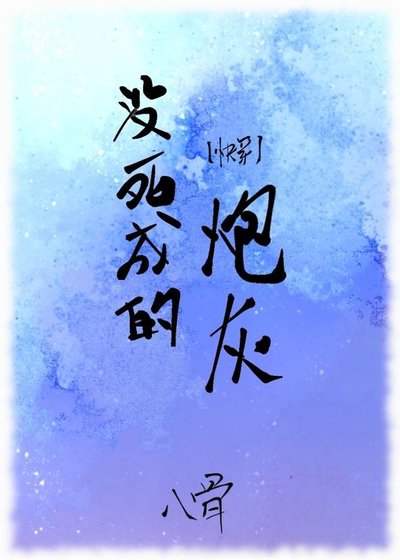 没死成的
[快穿]
炮灰
八骨